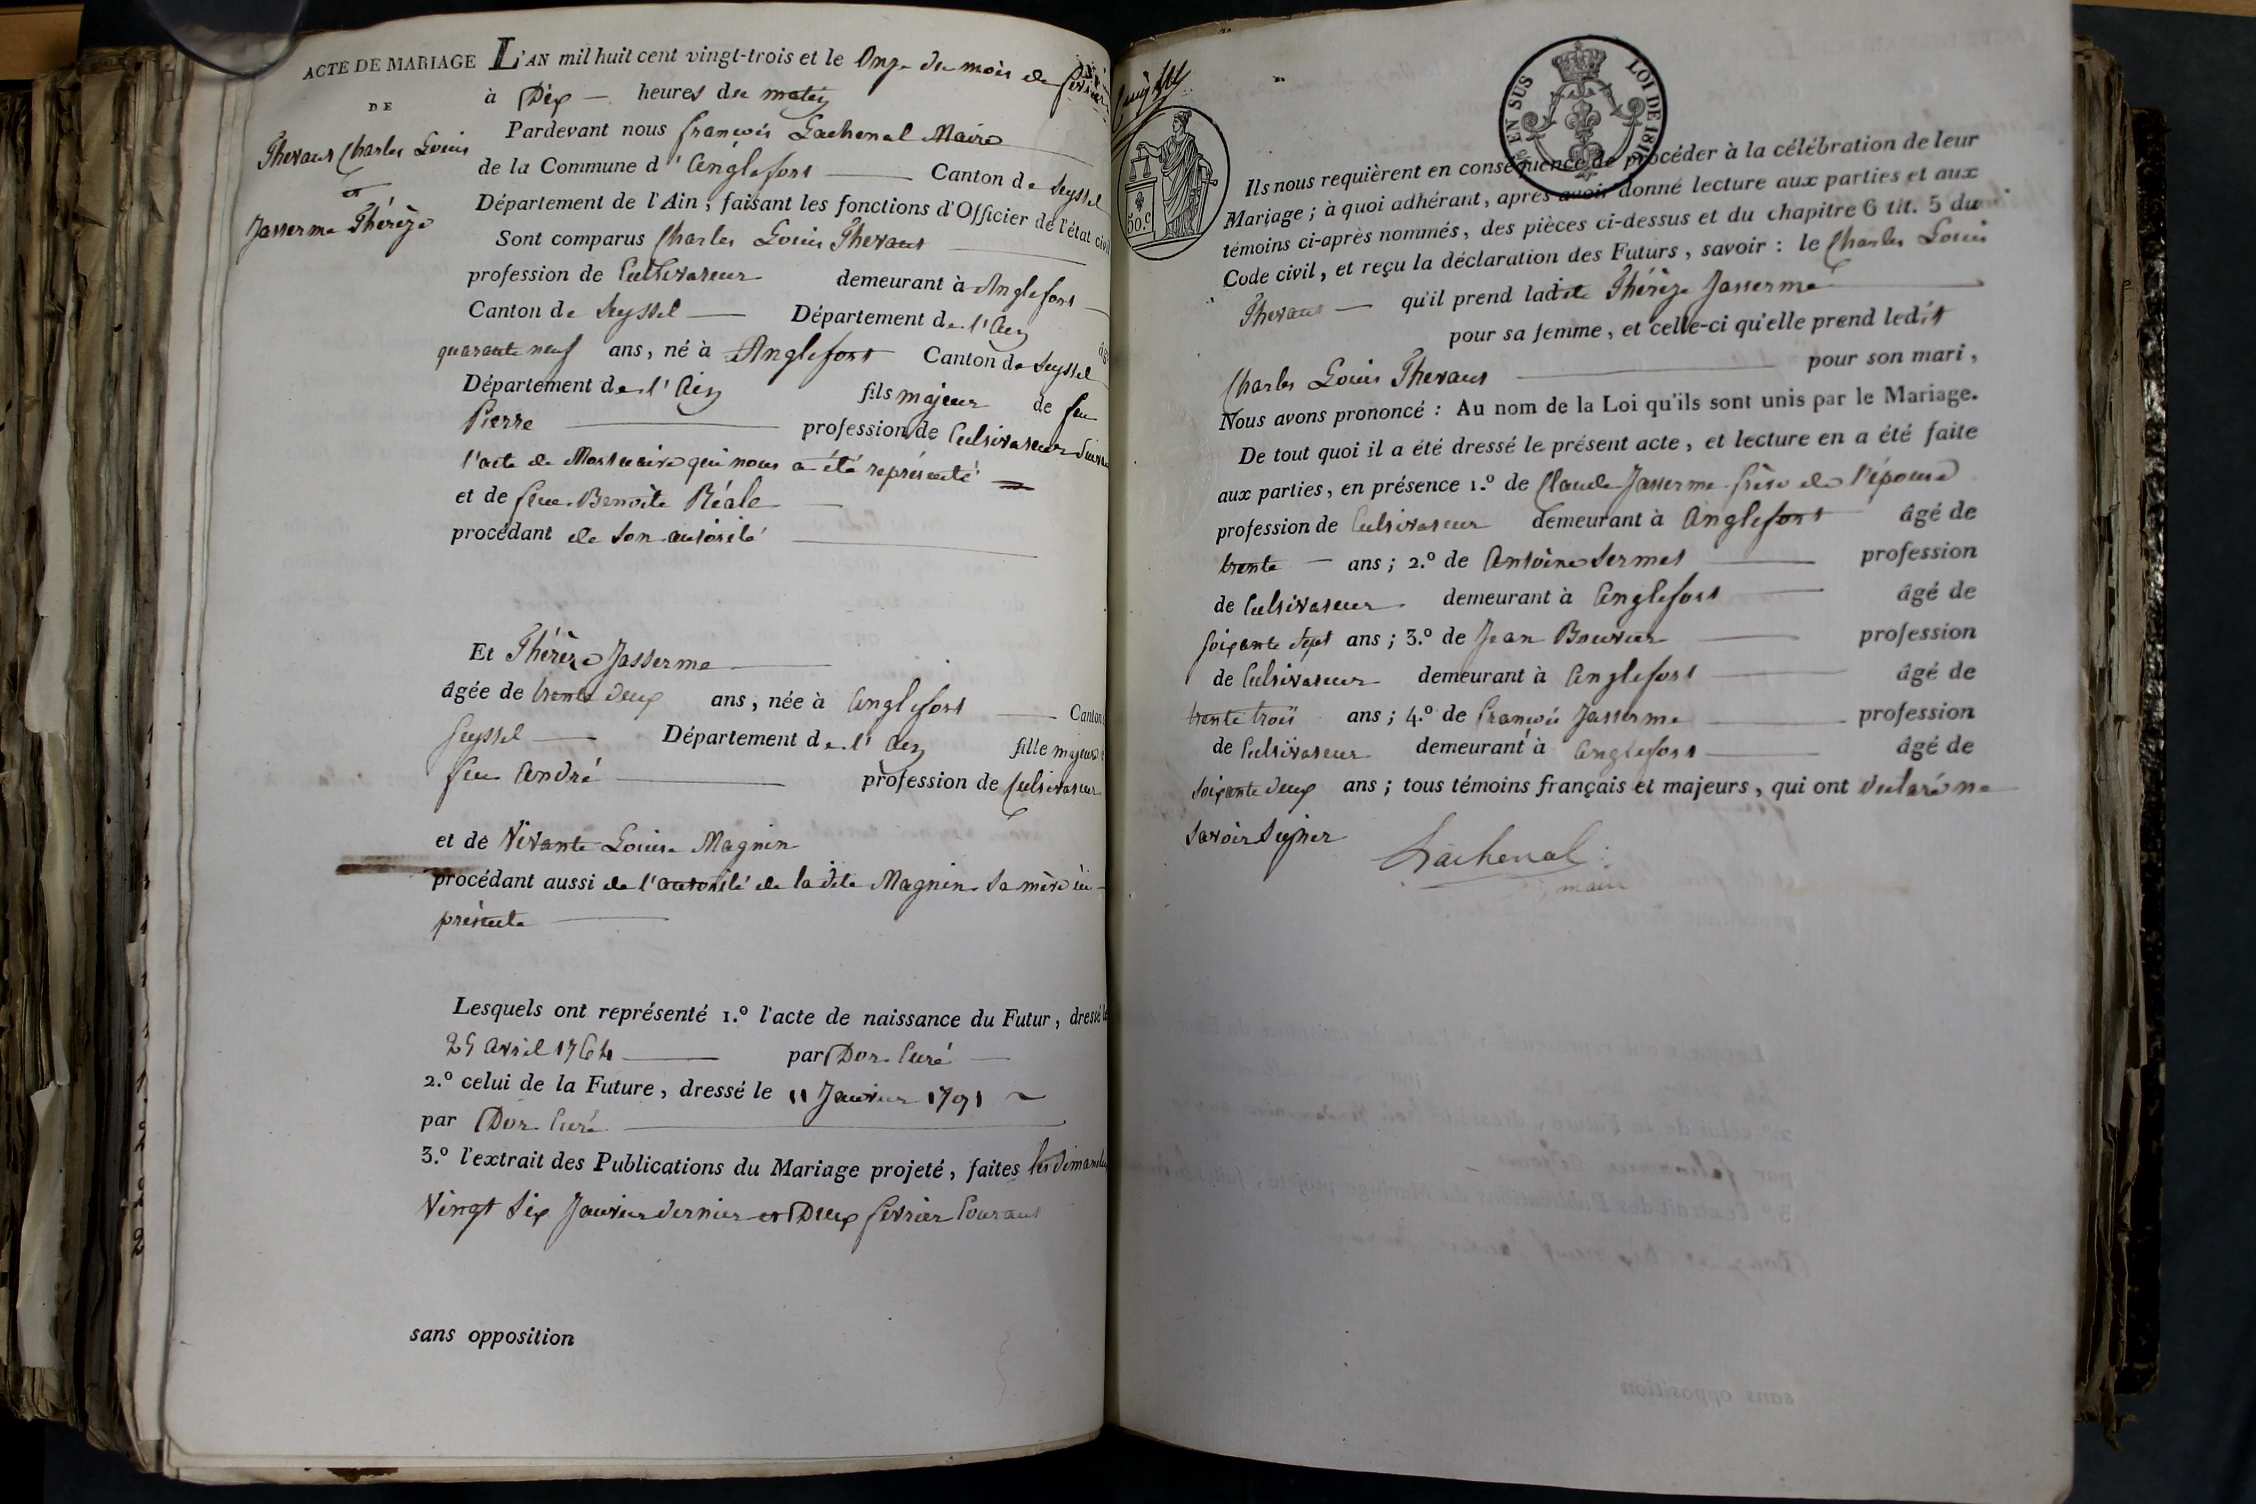 ACTE DE MARIAGE
DE
Thevaut Charles Louis
et
Jasserme Thérèze
L'AN mil huit cent vingt-trois et le Onze du mois de fevrier
à Dix heures du matin
Pardevant nous françois Lachenal Maire
de la Commune d'Anglefort Canton de Seyssel
Département de l'Ain, faisant les fonctions d'Officier de l'état civil
Sont comparus Charles Louis Thevaut
profession de Cultivateur demeurant à Anglefort
Canton de Seyssel Département de l'Ain
quarante neuf ans, né à Anglefort Canton de Seyssel
Département de l'Ain fils majeur de feu
Pierre profession de Cultivateur Suivant
l'acte de Mortuaire qui nous a été représenté
et de feue Benoite Réale
procédant de son autorité
Et Thérèze Jasserme
âgée de trente deux ans, née à Anglefort Canton
Seyssel Département de l'Ain fille majeure
feu André profession de Cultivateur
et de Vivante Louise Magnin
procédant aussi de l'autorité de la dite Magnin sa mère ici
présente
Lesquels ont représenté 1.º l'acte de naissance du Futur, dressé le
25 avril 1764 par Dor Curé
2.º celui de la Future, dressé le 11 Janvier 1791
par Dor Curé
3.º l'extrait des Publications du Mariage projeté, faites les dimanches
Vingt Six Janvier dernier et Deux fevrier Courant
sans opposition
50.c
EN SUS
LOI DE 1816
Ils nous requièrent en conséquence de procéder à la célébration de leur
Mariage; à quoi adhérant, après avoir donné lecture aux parties et aux
témoins ci-après nommés, des pièces ci-dessus et du chapitre 6 tit. 5 du
Code civil, et reçu la déclaration des Futurs, savoir: le Charles Louis
Thevaut qu'il prend ladite Thérèze Jasserme
pour sa femme, et celle-ci qu'elle prend ledit
Charles Louis Thevaut pour son mari,
Nous avons prononcé: Au nom de la Loi qu'ils sont unis par le Mariage.
De tout quoi il a été dressé le présent acte, et lecture en a été faite
aux parties, en présence 1.º de Claude Jasserme frère de l'épouse
profession de Cultivateur demeurant à Anglefort âgé de
trente ans; 2.º de Antoine Sermet profession
de Cultivateur demeurant à Anglefort âgé de
soixante sept ans; 3.º de Jean Bouvier profession
de Cultivateur demeurant à Anglefort âgé de
trente trois ans; 4.º de François Jasserme profession
de Cultivateur demeurant à Anglefort âgé de
soixante deux ans; tous témoins français et majeurs, qui ont déclaré ne
savoir Signer
Lachenal
maire